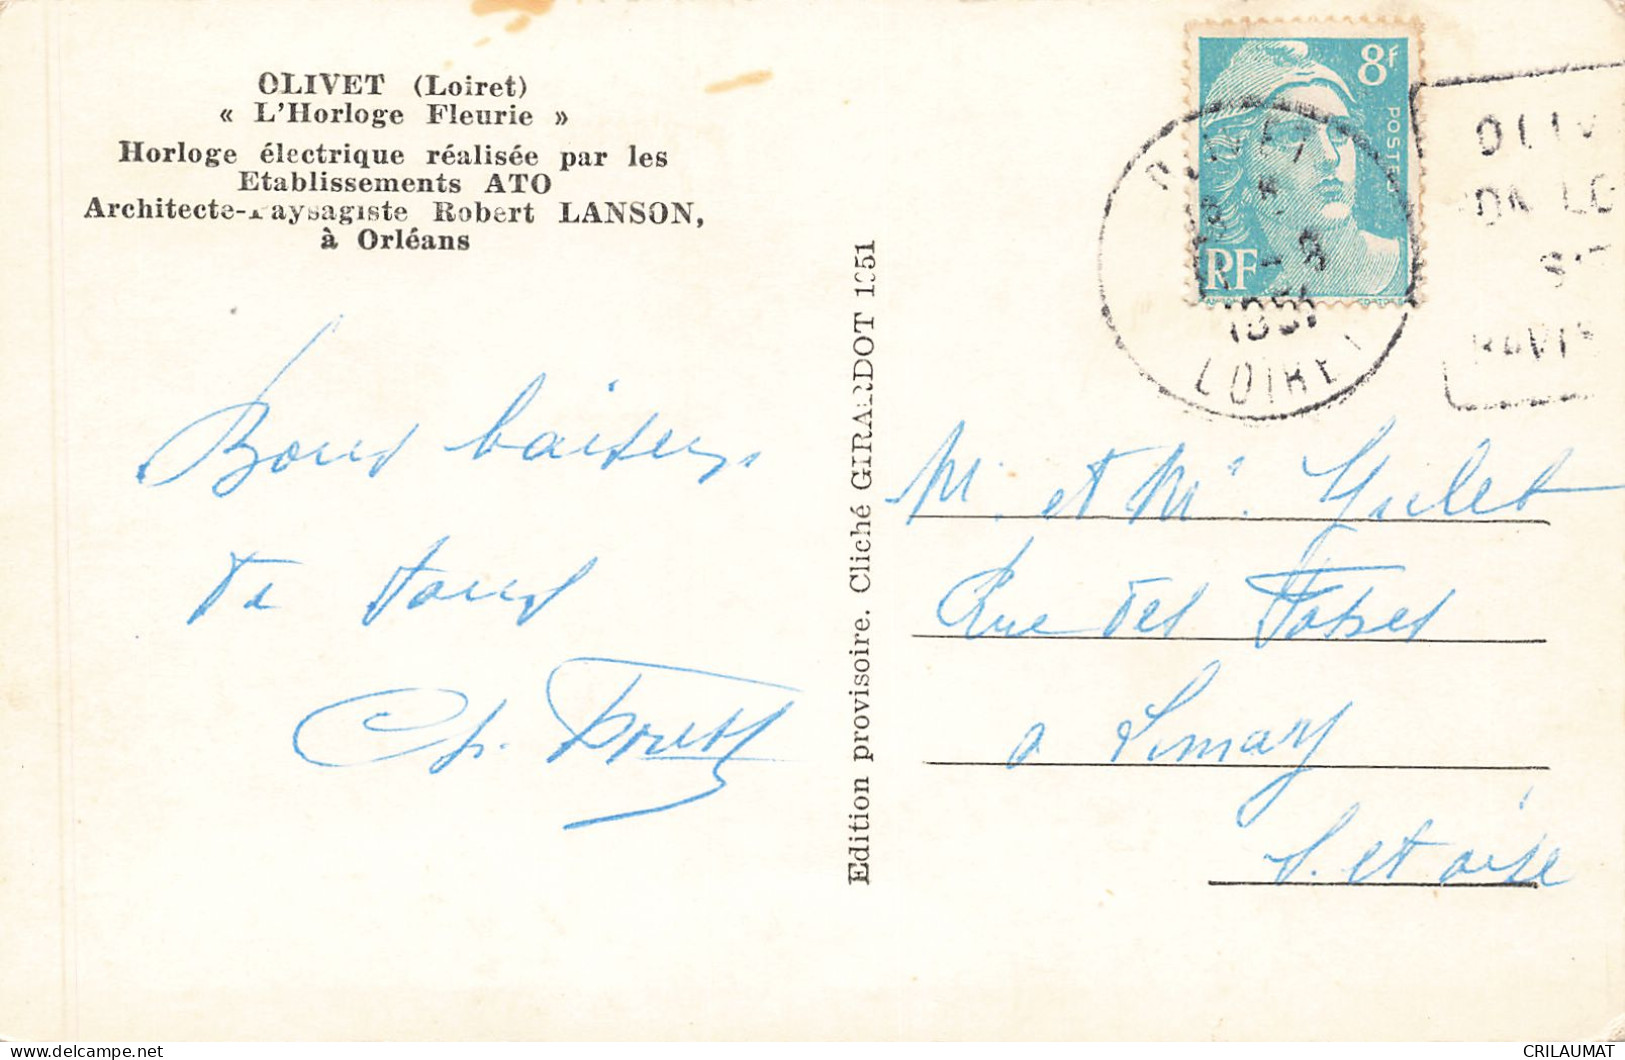 OLIVET (Loiret)
« L'Horloge Fleurie »
Horloge électrique réalisée par les
Etablissements ATO
Architecte-Paysagiste Robert LANSON,
à Orléans
Bons baisers
de tous
Ch.
Edition provisoire. Cliché GIRARDOT 1951
8f
POSTES
RF
OLIVET
1951
LOIRET
OLIV
SON LO
SIT
RAVIS
M. et Me
Rue des Fosses
a Limay
S. et oise
CRILAUMAT